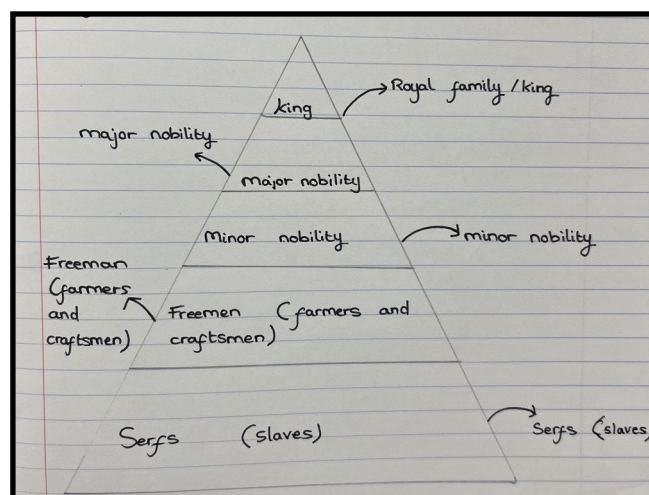 king
Royal family / king
major nobility
major nobility
Minor nobility
minor nobility
Freeman
(farmers
and
craftsmen)
Freemen (farmers and
craftsmen)
Serfs (slaves)
Serfs (slaves)